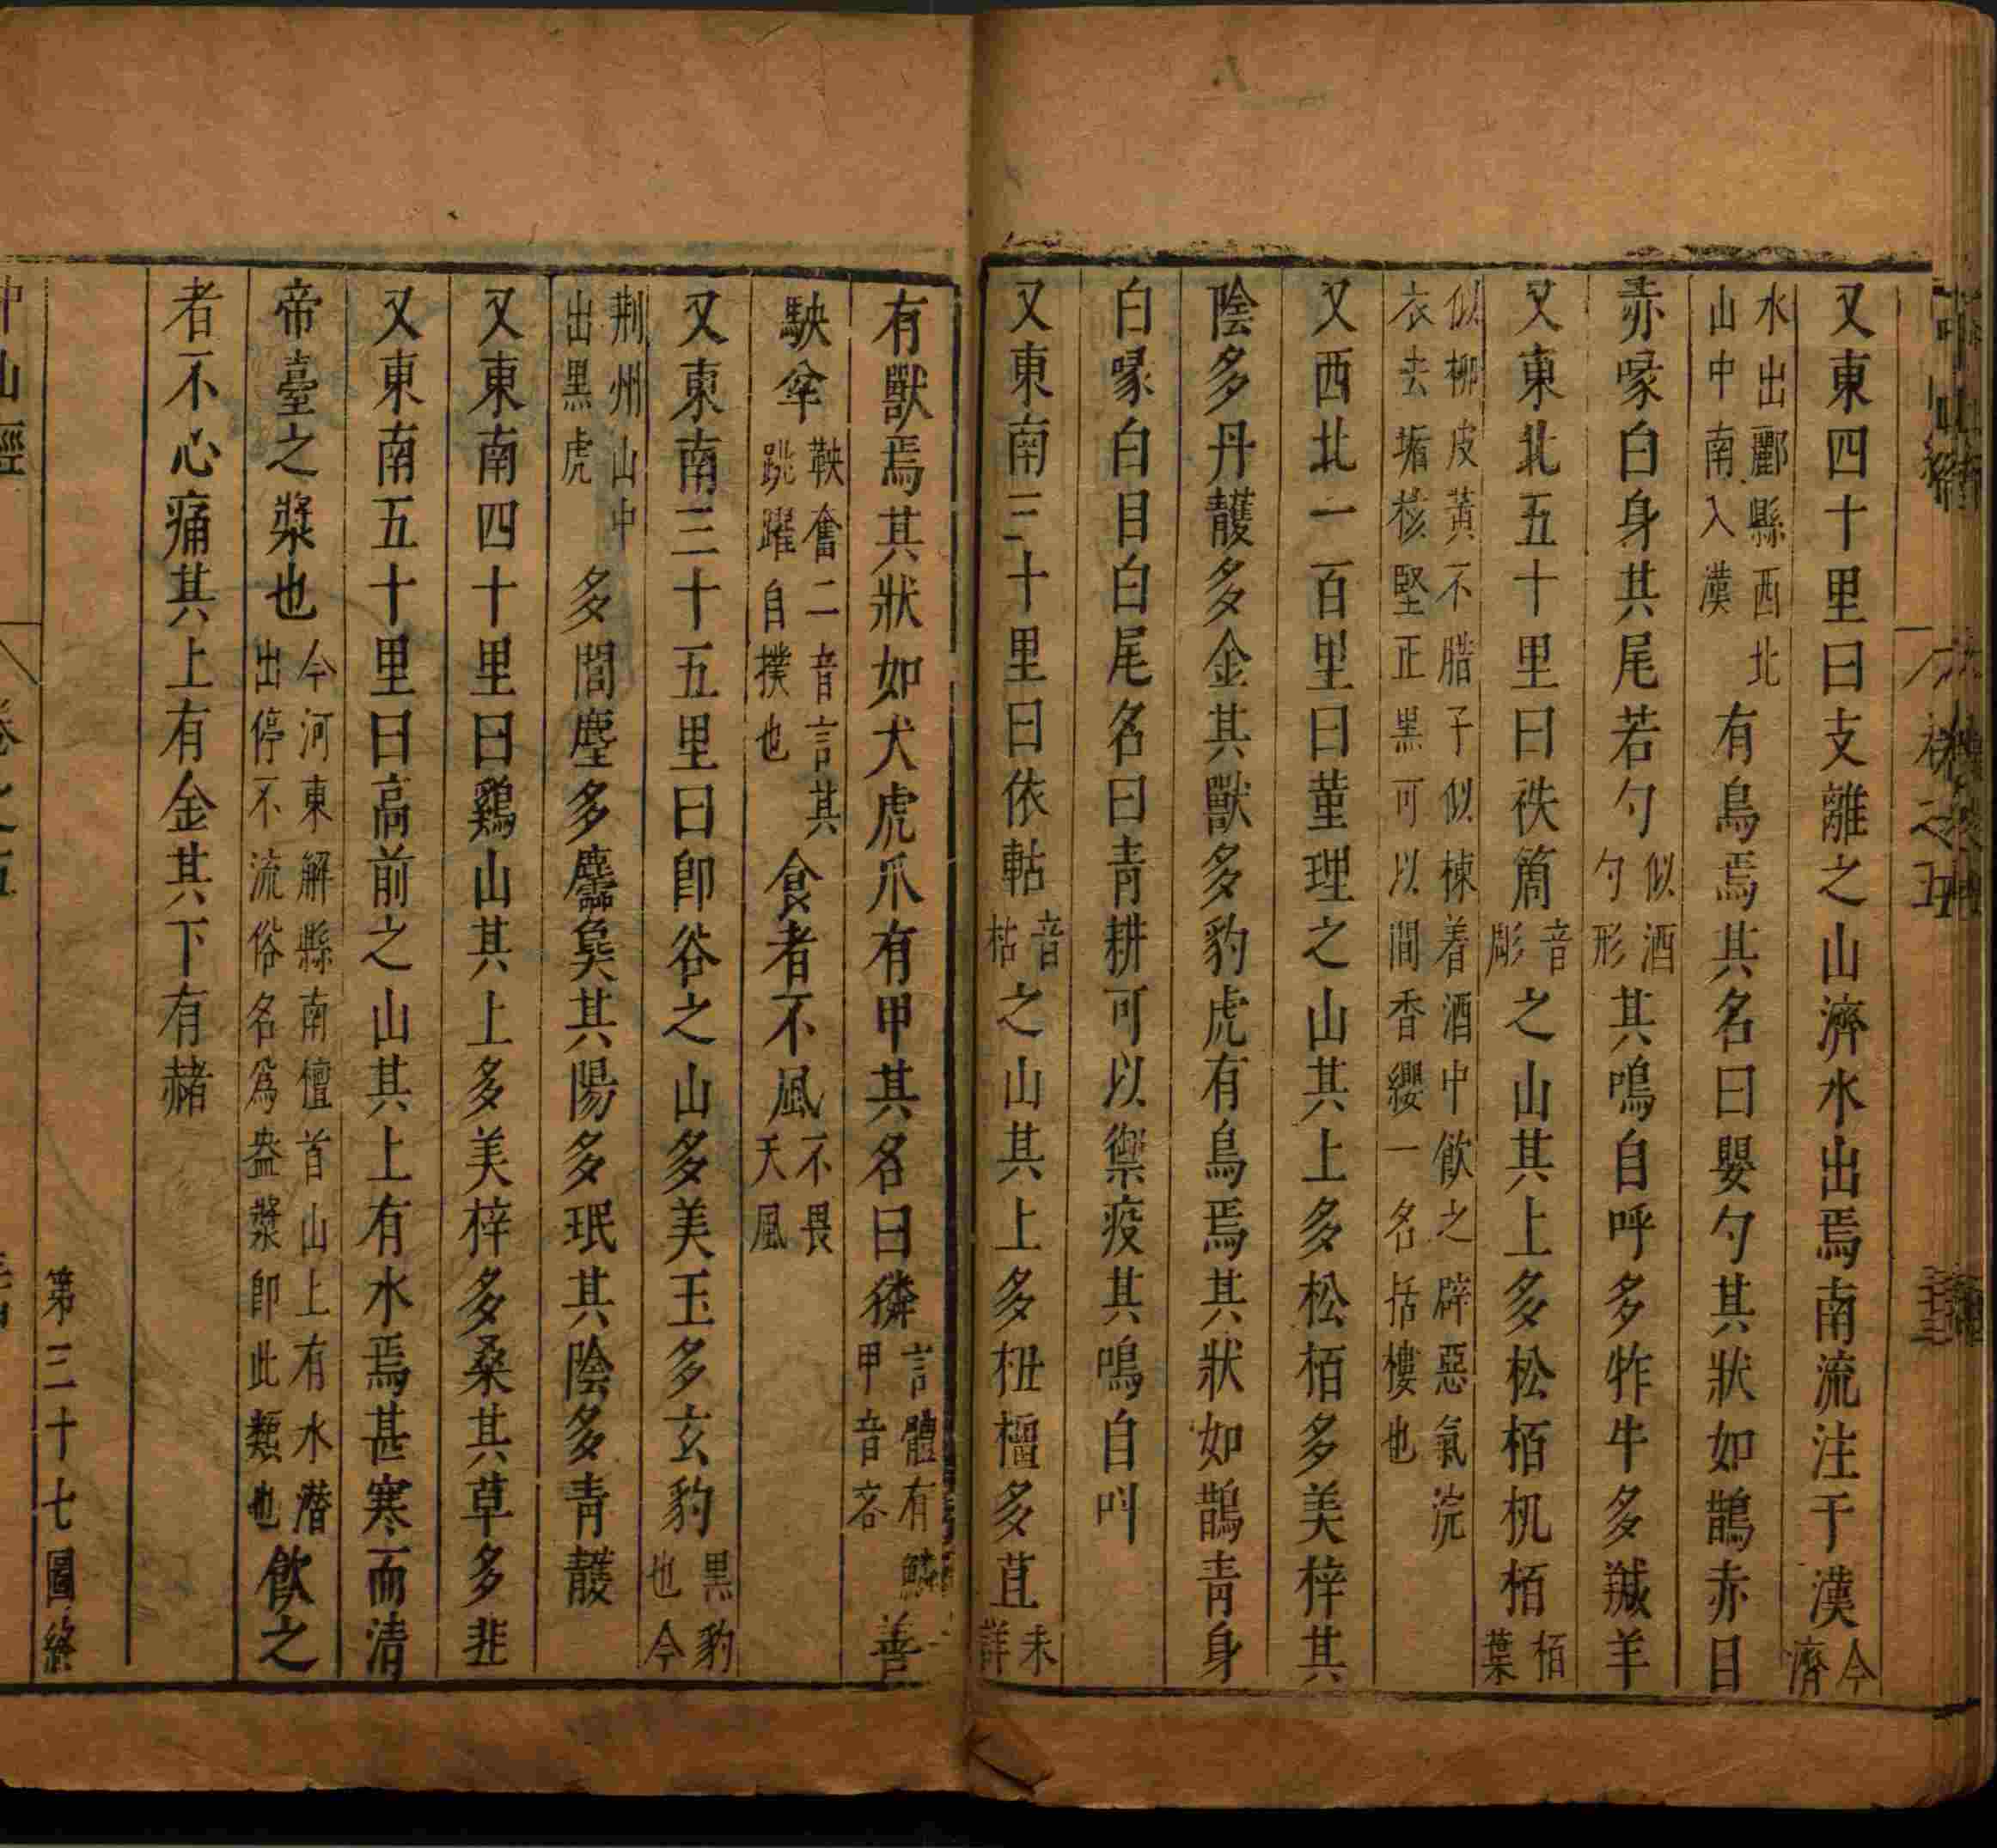 又東四十里曰支離之山濟水出焉南流注于漢今濟
水出酈縣西北山中南入漢有鳥焉其名曰嬰勺其狀如鵲赤目
赤喙白身其尾若勺似酒勺形其鳴自呼多㸲牛多羬羊
又東北五十里曰祑𥳑音彫之山其上多松栢机栢栢葉
似柳皮黃不措子似楝着酒中飲之辟惡氣浣衣去垢核堅正黑可以間香纓一名括樓也
又西北一百里曰堇理之山其上多松栢多美梓其
陰多丹雘多金其獸多豹虎有鳥焉其狀如鵲青身
白喙白目白尾名曰青耕可以禦疫其鳴自叫
又東南三十里曰依軲音枯之山其上多杻橿多苴未詳
有獸焉其狀如犬虎爪有甲其名曰獜言體有鱗甲音吝善
駚𠦜鞅奮二音言其跳躍自撲也食者不風不畏天風
又東南三十五里曰卽谷之山多美玉多玄豹黑豹也今
荆州山中出黑虎多閭麈多麢㚟其陽多珉其陰多青雘
又東南四十里曰鷄山其上多美梓多桑其草多韭
又東南五十里曰高前之山其上有水焉甚寒而清
帝臺之漿也今河東解縣南檀首山上有水潛出停不流俗名爲盎漿卽此類也飲之
者不心痛其上有金其下有赭
第三十七圖終
中山經
卷之五